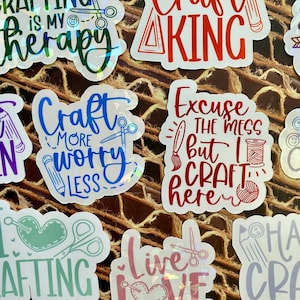 CRAFTING
IS MY
therapy
Craft
KING
Craft
MORE
worry
LESS
Excuse
THE MESS
but I
CRAFT
here
I
AFTING
Live
LOVE
HA
CRA